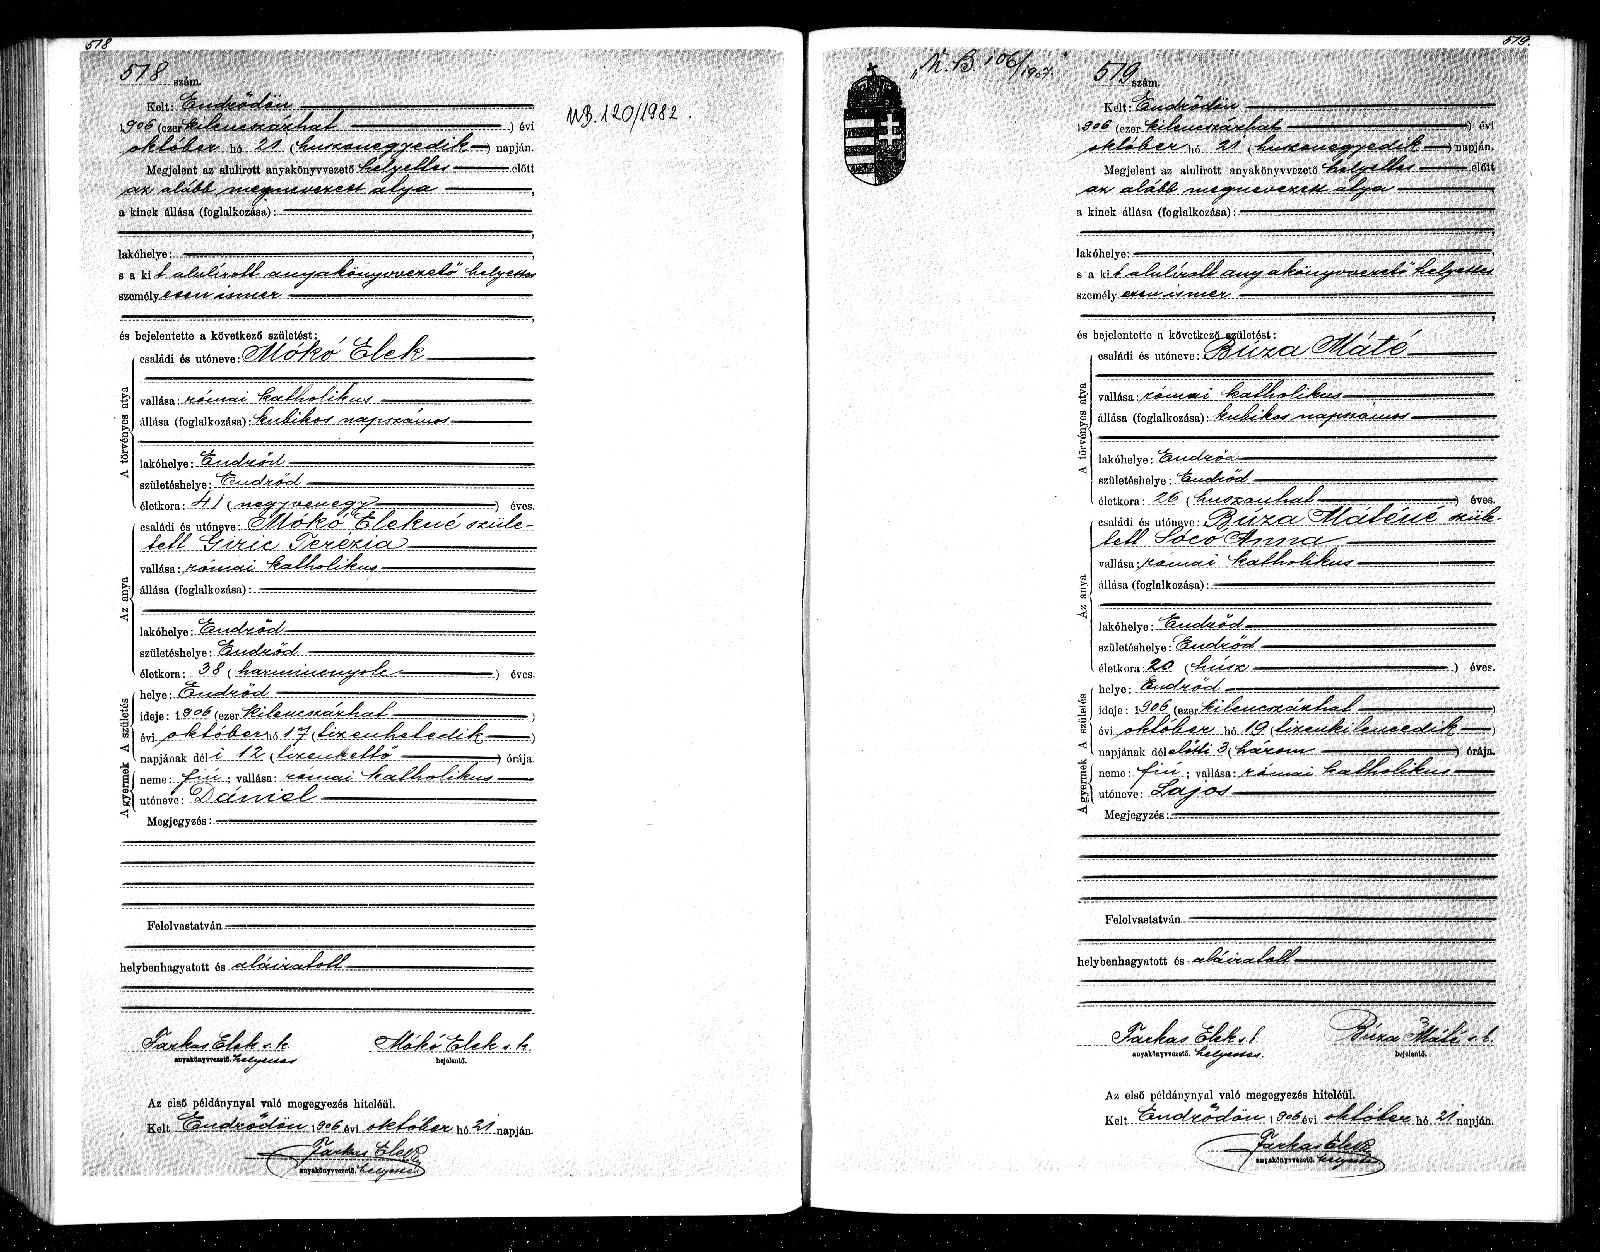 518
518 szám.
Kelt: Endrődön
1906 (ezer kilencszázhat) évi
október hó 21 (huszonegyedik) napján.
Megjelent az alulirott anyakönyvvezető helyettes előtt
az alább megnevezett atya,
a kinek állása (foglalkozása):
lakóhelye:
s a kit alulírott anyakönyvvezető helyettes
személyesen ismer
és bejelentette a következő születést:
A törvényes atya
családi és utóneve: Mókó Elek
vallása: római katholikus
állása (foglalkozása): kubikos napszámos
lakóhelye: Endrőd
születéshelye: Endrőd
életkora: 41 (negyvenegy) éves.
Az anya
családi és utóneve: Mókó Elekné szüle-
tett Giric Terézia
vallása: római katholikus
állása (foglalkozása):
lakóhelye: Endrőd
születéshelye: Endrőd
életkora: 38 (harmincnyolc) éves.
A gyermek A születés
helye: Endrőd
ideje: 1906 (ezer kilencszázhat)
évi október hó 17 (tizenhetedik)
napjának déli 12 (tizenkettő) órája.
neme: fiú; vallása: római katholikus
utóneve: Dániel
Megjegyzés:
Felolvastatván
helybenhagyatott és aláiratott
Farkas Elek s.k. Mókó Elek s.k.
anyakönyvvezető. helyettes bejelentő.
Az első példánynyal való megegyezés hiteléül.
Kelt Endrődön 1906 évi október hó 21 napján.
Farkas Elek
anyakönyvvezető. helyettes
NB. 120/1982.
519.
N.B 106/1907.
519 szám.
Kelt: Endrődön
1906 (ezer kilencszázhat) évi
október hó 21 (huszonegyedik) napján.
Megjelent az alulirott anyakönyvvezető helyettes előtt
az alább megnevezett atya
a kinek állása (foglalkozása):
lakóhelye:
s a kit alulírott anyakönyvvezető helyettes
személyesen ismer
és bejelentette a következő születést:
A törvényes atya
családi és utóneve: Búza Máté
vallása: római katholikus
állása (foglalkozása): kubikos napszámos
lakóhelye: Endrőd
születéshelye: Endrőd
életkora: 26 (huszonhat) éves.
Az anya
családi és utóneve: Búza Máténé szüle-
tett Soco Anna
vallása: római katholikus
állása (foglalkozása):
lakóhelye: Endrőd
születéshelye: Endrőd
életkora: 20 (húsz) éves.
A gyermek A születés
helye: Endrőd
ideje: 1906 (ezer kilencszázhat)
évi október hó 19 (tizenkilencedik)
napjának délelőtti 3 (három) órája.
neme: fiú; vallása: római katholikus
utóneve: Lajos
Megjegyzés:
Felolvastatván
helybenhagyatott és aláiratott
Farkas Elek s.k. Búza Máté s.k.
anyakönyvvezető. helyettes. bejelentő.
Az első példánynyal való megegyezés hiteléül.
Kelt Endrődön 1906 évi október hó 21 napján.
Farkas Elek
anyakönyvvezető. helyettes